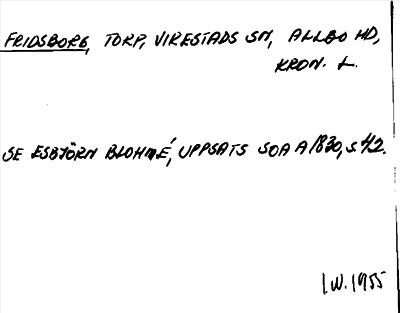 FRIDSBORG, TORP, VIRESTADS SN, ALLBO HD,
KRON. L.
SE ESBJÖRN BLOHMÉ, UPPSATS SOA A1830, S 42.
I.W. 1955